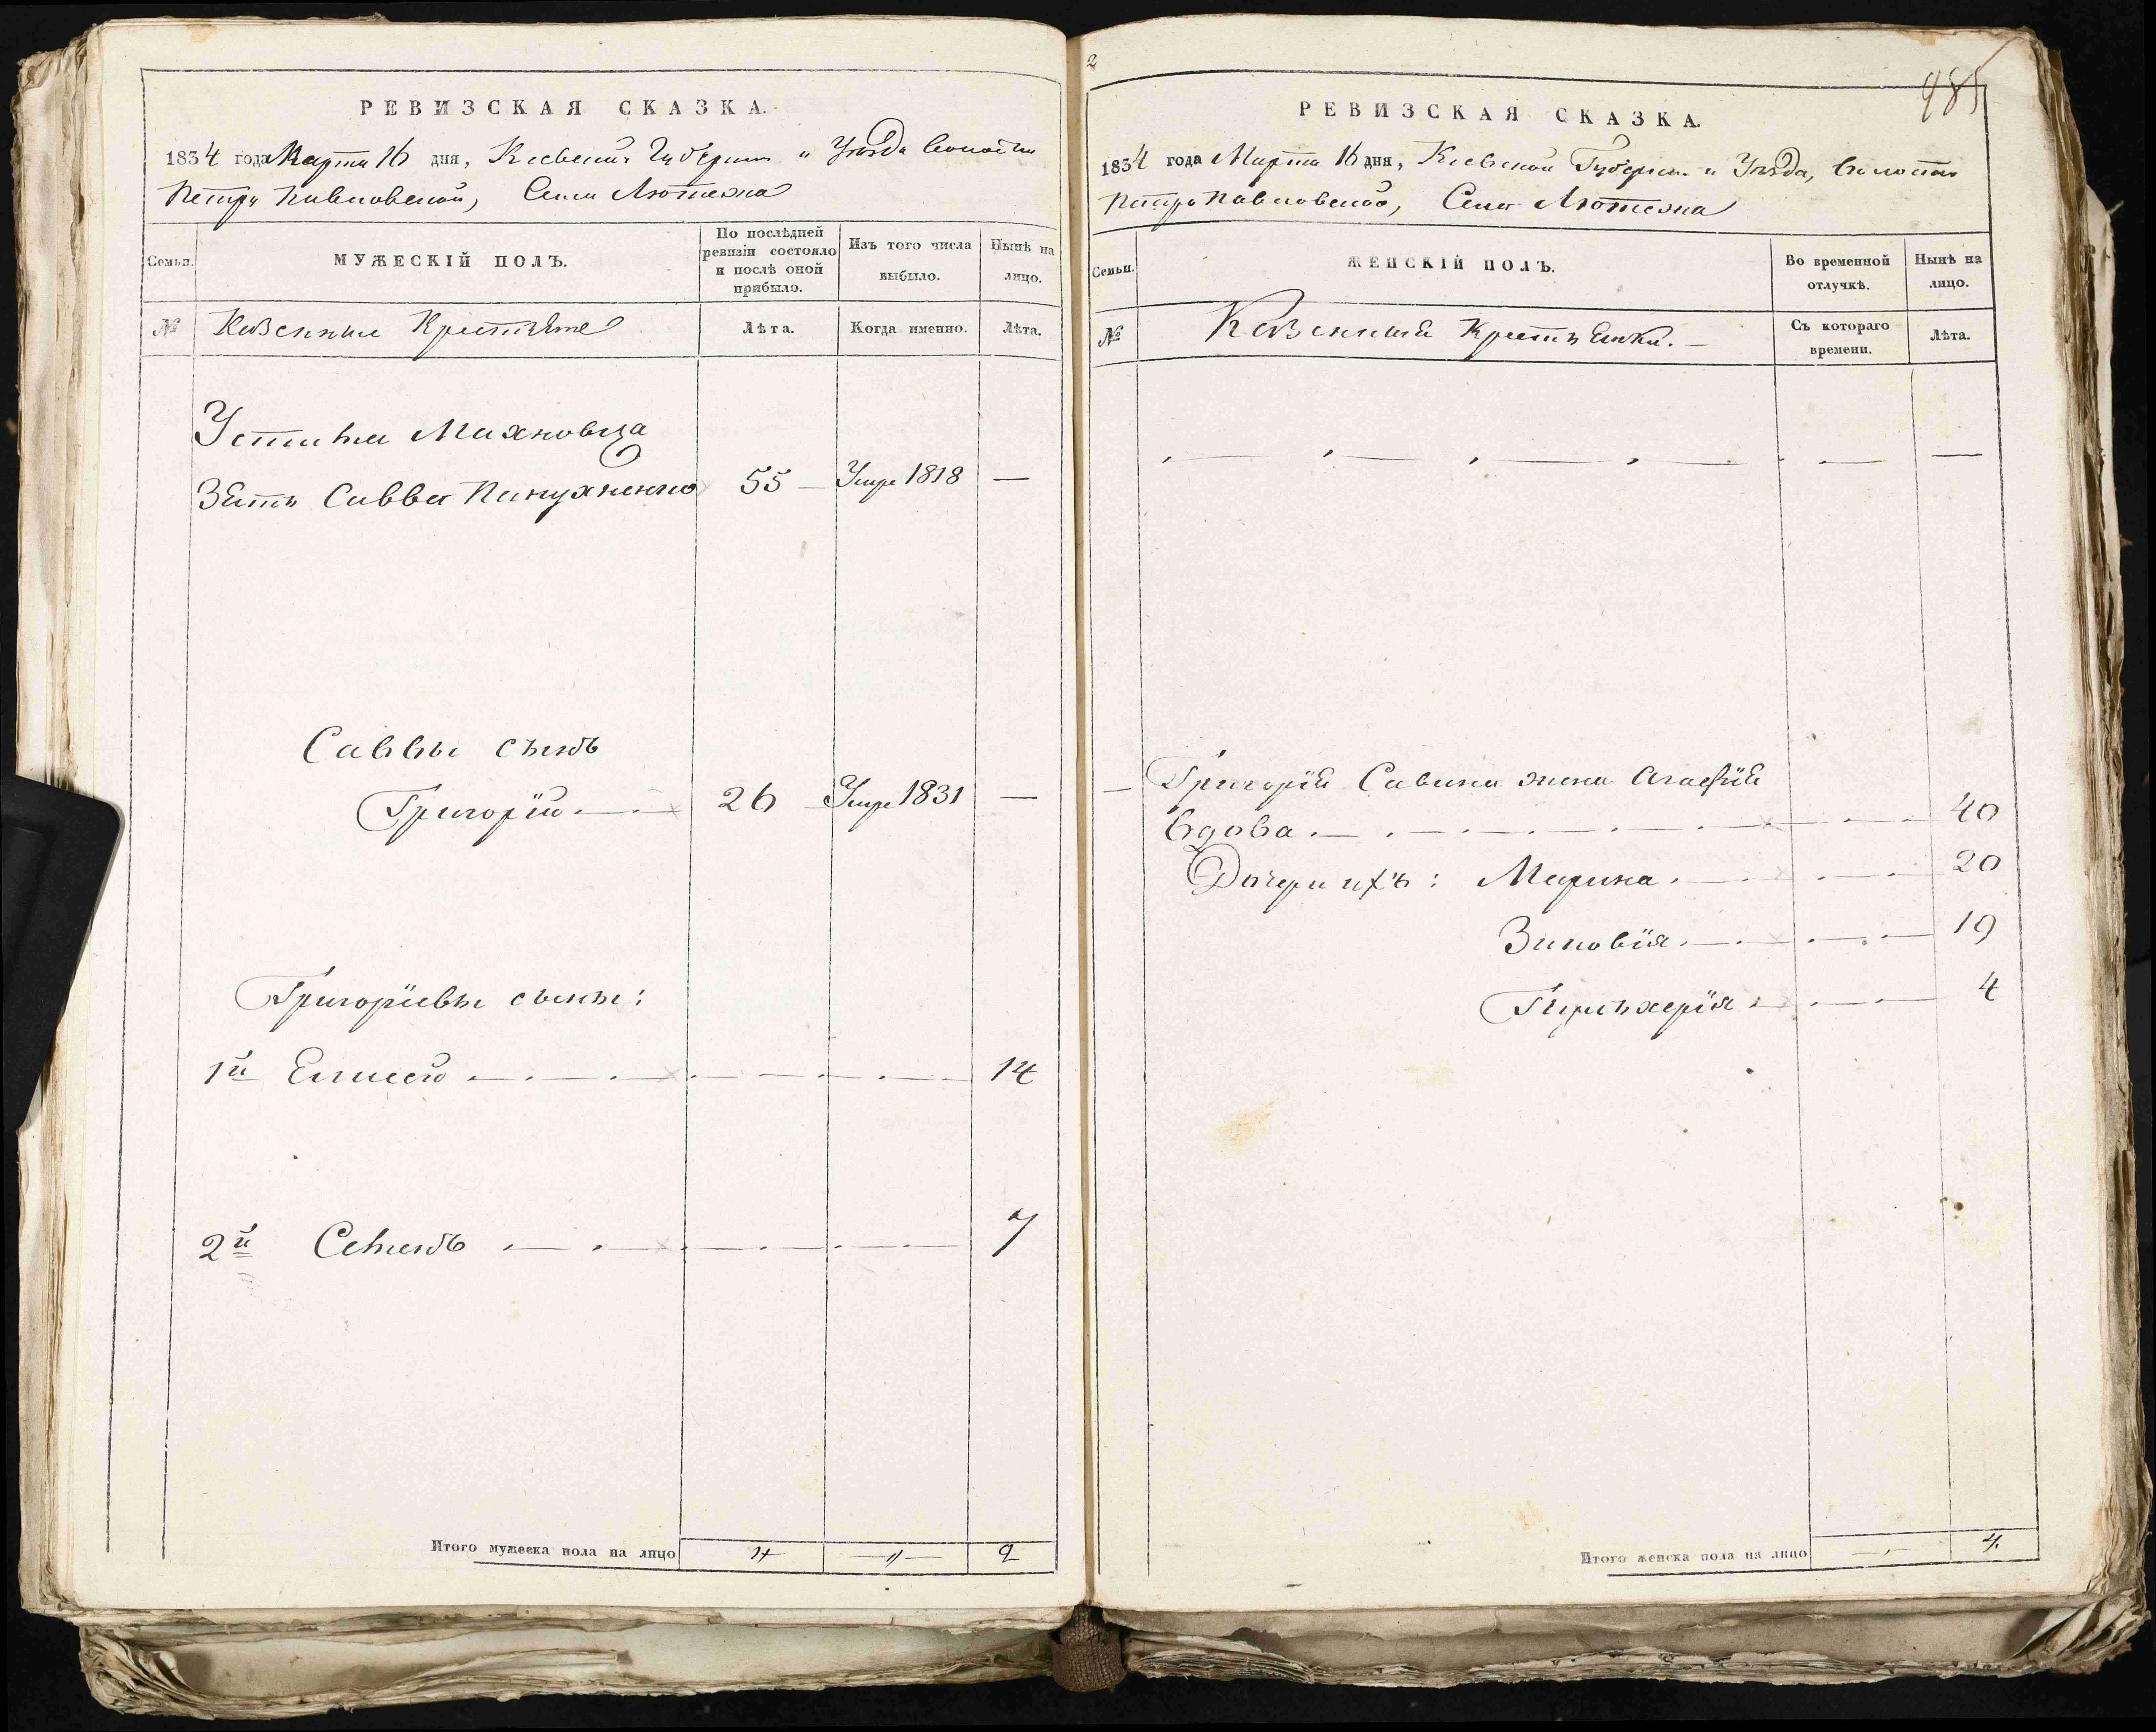 РЕВИЗСКАЯ СКАЗКА.
1834 года Марта 16 дня, Кіевской Губерніи и Уѣзда волости
Петро Павловской, Села Лютежа
Семьи.
МУЖЕСКІЙ ПОЛЪ.
По послѣдней ревизіи состояло и послѣ оной прибыло.
Изъ того числа выбыло.
Нынѣ на лицо.
№
Казенные Крестьяне
Лѣта.
Когда именно.
Лѣта.
Устина Махновца
Зять Савва 55 — Умре 1818 —
Саввы сынъ
Григорій 26 Умре 1831 —
Григоріевы сыны:
1й Елисей 14
2й Семенъ 7
Итого мужеска пола на лицо
2
2
985
РЕВИЗСКАЯ СКАЗКА.
1834 года Марта 16 дня, Кіевской Губерніи и Уѣзда, волости
Петро Павловской, Села Лютежа
Семьи.
ЖЕНСКІЙ ПОЛЪ.
Во временной отлучкѣ.
Нынѣ на лицо.
№
Казенныя Крестьянки.
Съ котораго времени.
Лѣта.
Григорія Савина жена Агафія
вдова 40
Дочери ихъ: Марина 20
Зиновія 19
Пульхерія 4
Итого женска пола на лицо 4.